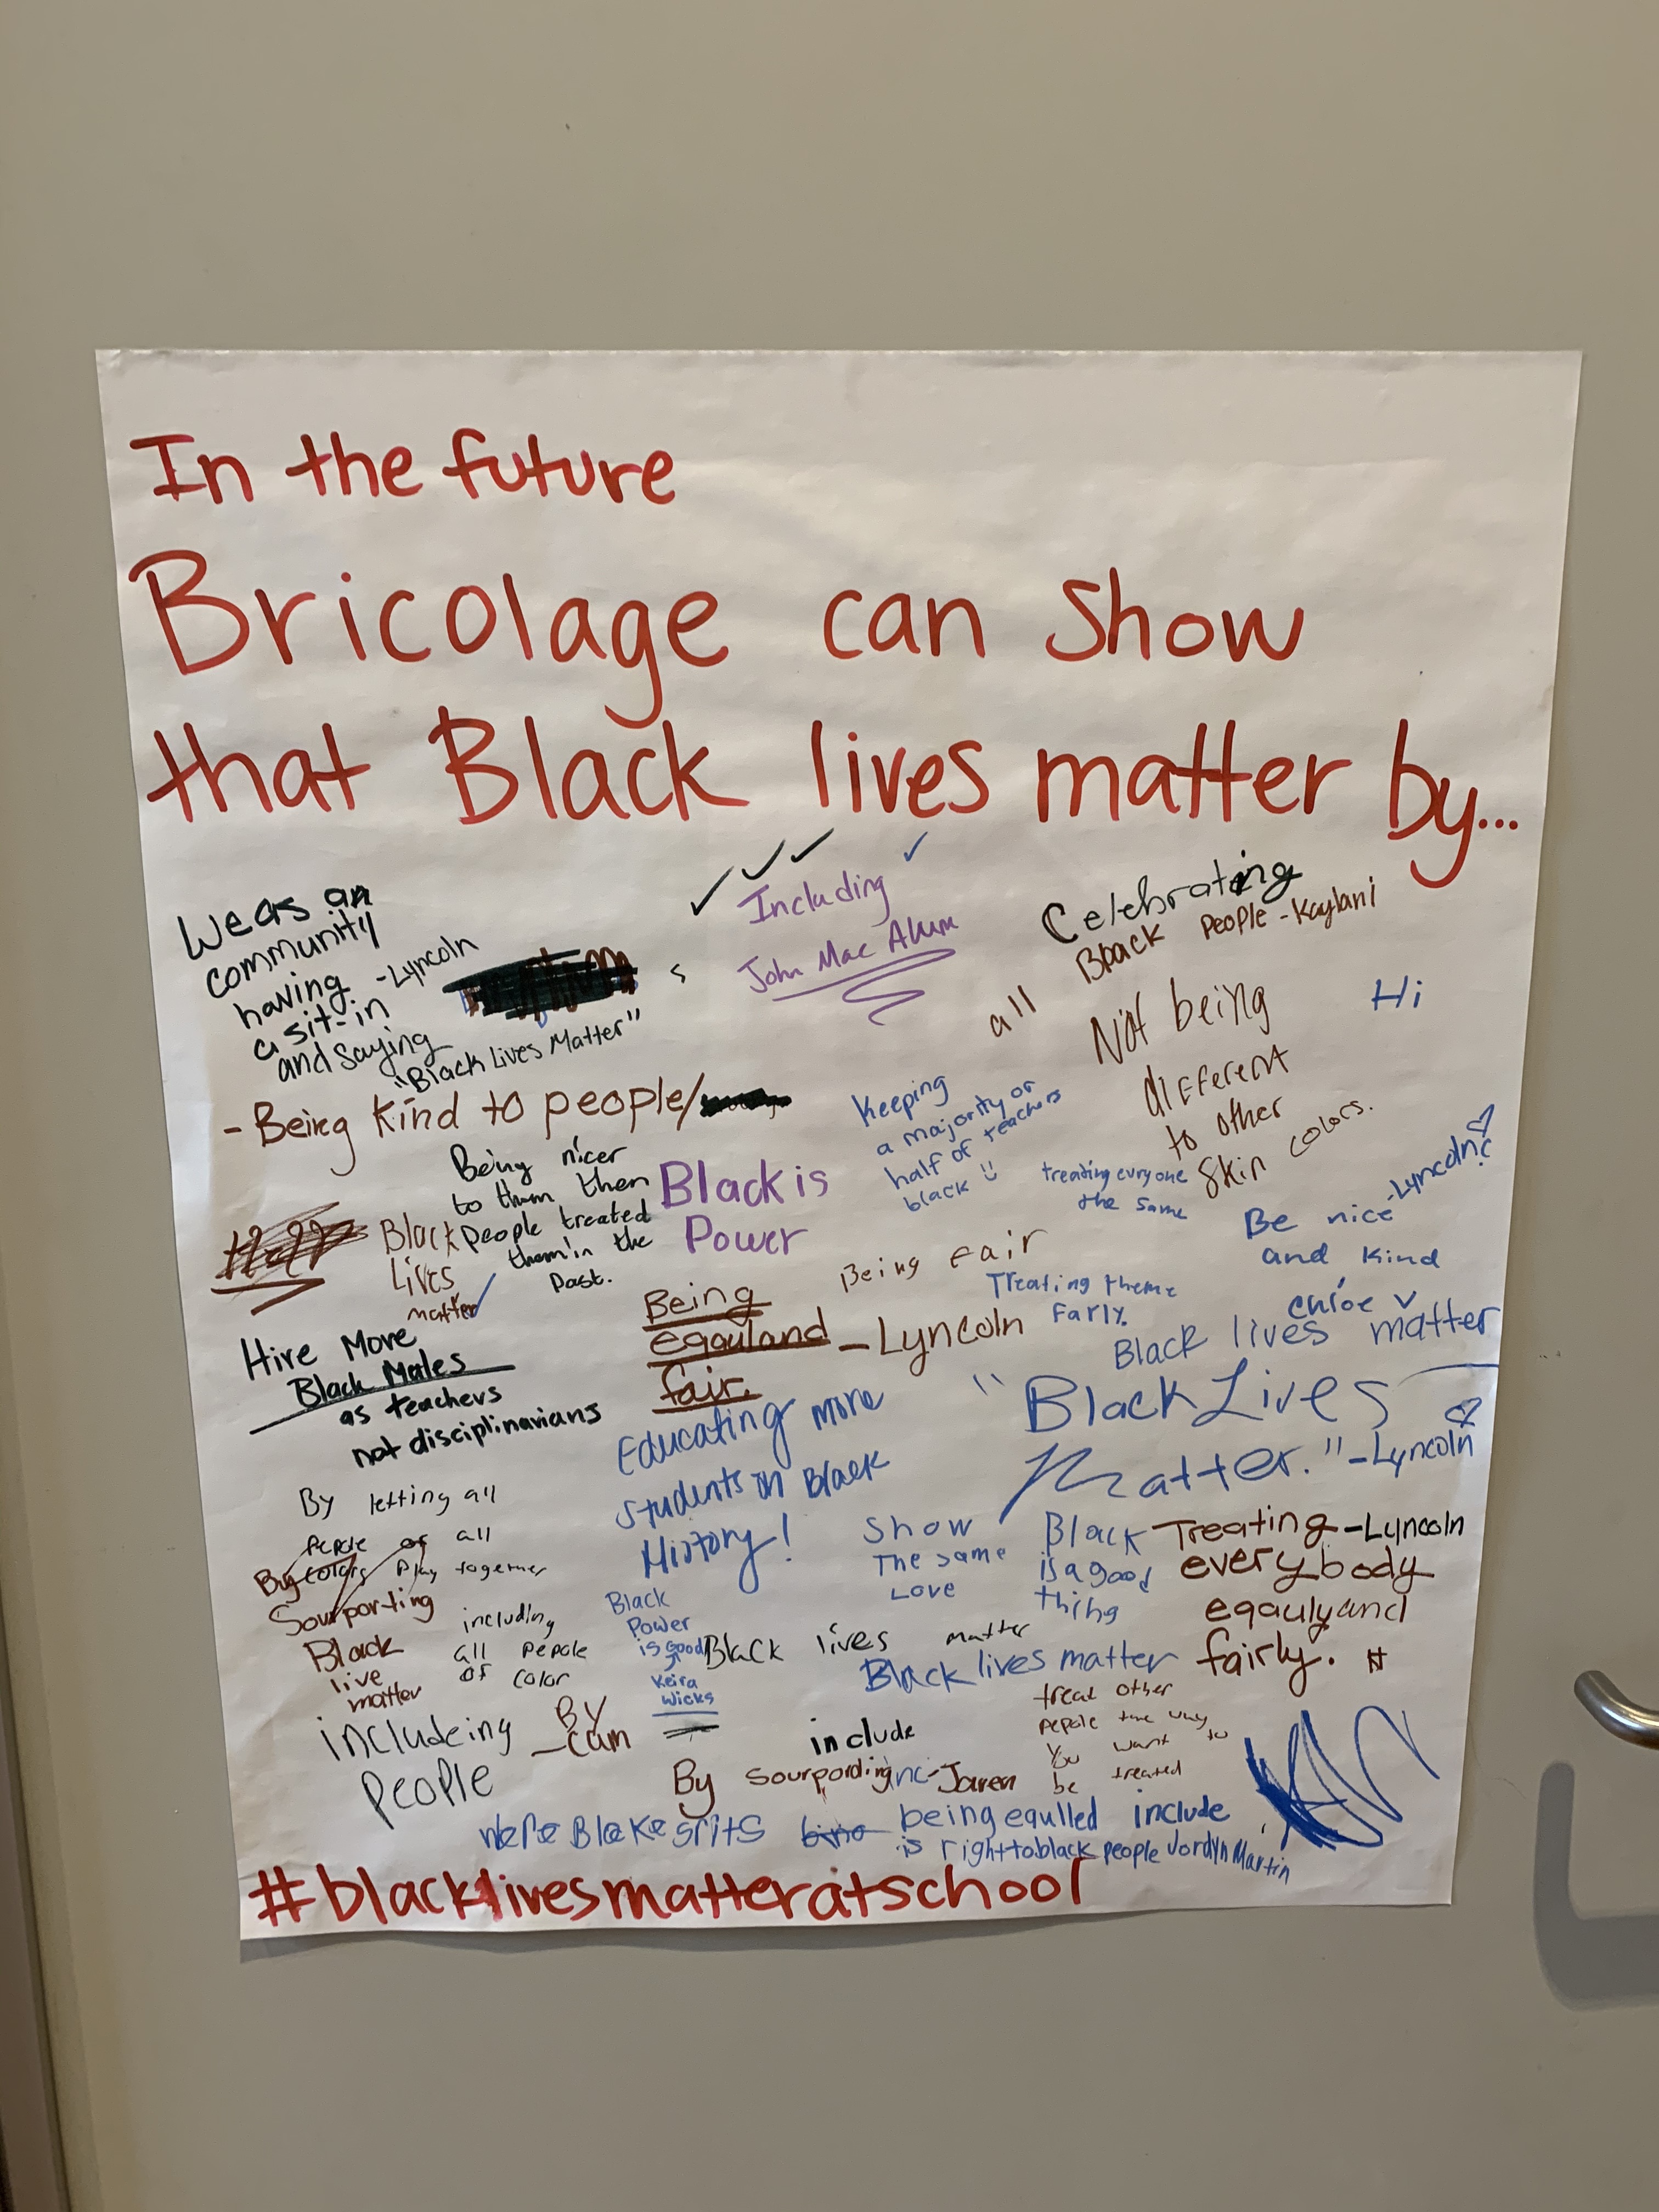 In the future
Bricolage can show
that Black lives matter by...
We as an
community
having
a sit-in
and saying
"Black Lives Matter"
-Lyncoln
Including
John Mac Alum
Celebrating
all Bback People -Kaylani
Hi
Not being
different
to other
Skin colors.
- Being kind to people/
Keeping
a majority or
half of teachers
black
treating euryone
the same
-Lyncoln
Being nicer
to them then
People treated
them in the
past.
Black is
Power
Black
Lives
matter
Be nice
and kind
chloe
Being Fair
Treating theme
Farly.
Being
eqauland
fair.
-Lyncoln
Black lives matter
Hire More
Black Males
as teachers
not disciplinarians
Educating more
students in Black
History!
"Black Lives
Matter." -Lyncoln
By letting all
Pepole of all
colors Play together
Show
The same
Love
Black
is a good
thing
Treating -Lyncoln
everybody
eqauly and
fairly.
By
Sourporting
Black
live
matter
including
all pepole
of color
Black
Power
is Good
Keira
Wicks
Black lives matter
Black lives matter
includeing
People
By
-cam
include
treat other
pepole the way
You want to
be treated
By sourpording
inc-Jaren
being equlled include
is right to black people Jordyn Martin
#blacklivesmatteratschool